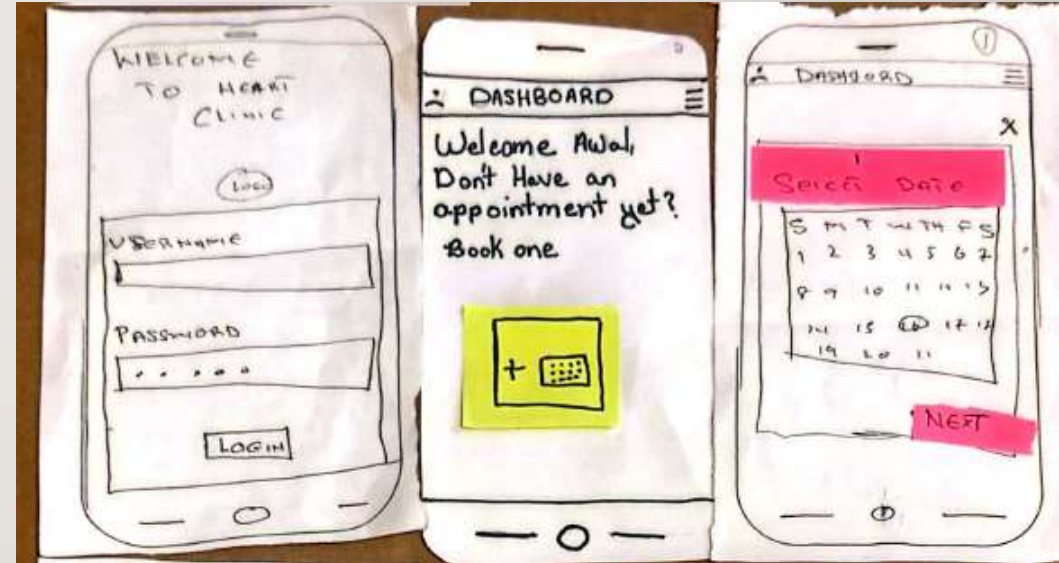 WELCOME
TO HEART
CLINIC
LOGO
USERNAME
PASSWORD
LOGIN
DASHBOARD
Welcome Awal,
Don't Have an
appointment yet?
Book one
+
1
DASHBORD
X
1
SELECT DATE
S M T W TH F S
1 2 3 4 5 6 7
8 9 10 11 11 13
14 15 16 17 18
19 20 11
NEXT